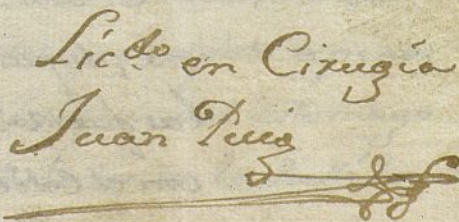 Licdo en Cirugia
Juan Puig